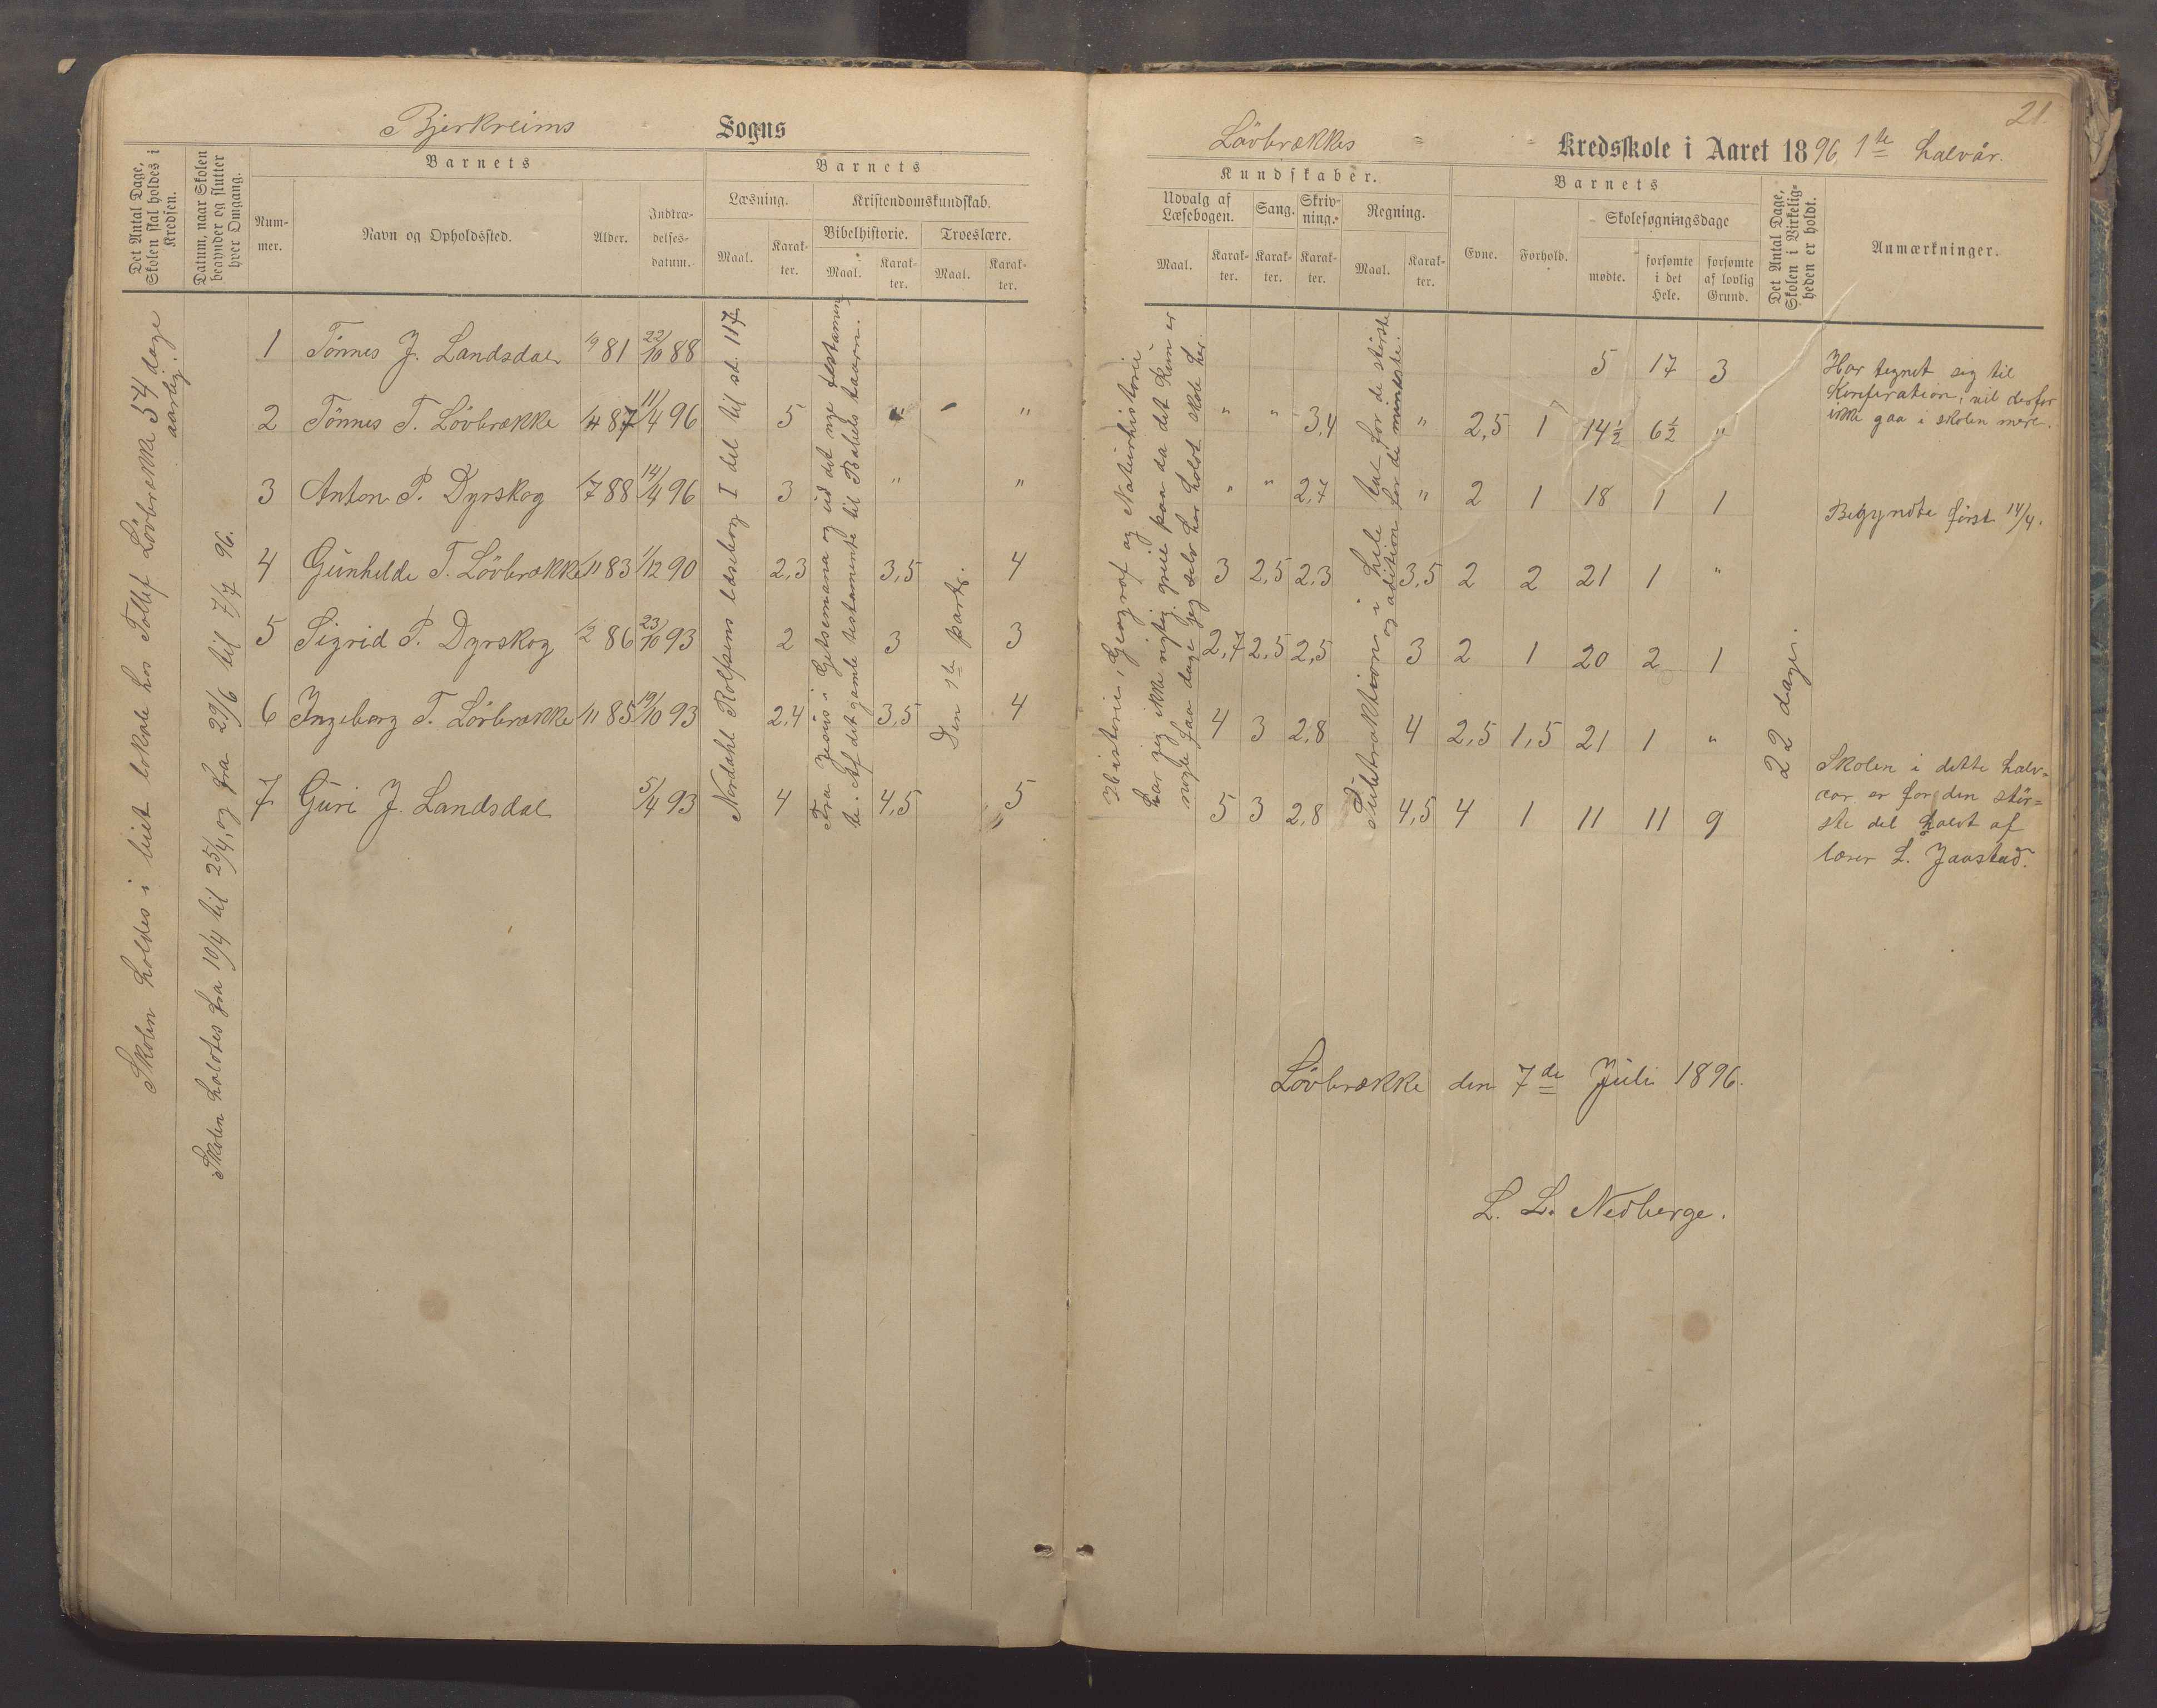 21.
Bjerkreims Sogns
Løvbrækkes Kredsskole i Aaret 1896 1ste halvår.
Det Antal Dage, Skolen skal holdes i Kredsen.
Datum, naar Skolen begynder og slutter hver Omgang.
Barnets
Nummer.
Navn og Opholdssted.
Alder.
Indtrædelsesdatum.
Barnets
Læsning.
Maal.
Karakter.
Kristendomskundskab.
Bibelhistorie.
Maal.
Karakter.
Troeslære.
Maal.
Karakter.
Kundskaber.
Udvalg af Læsebogen.
Maal.
Karakter.
Sang.
Karakter.
Skrivning.
Karakter.
Regning.
Maal.
Karakter.
Barnets
Evne.
Forhold.
Skolesøgningsdage
mødte.
forsømte i det Hele.
forsømte af lovlig Grund.
Det Antal Dage, Skolen i Virkeligheden er holdt.
Anmærkninger.
Skolen holdes i leiet lokale hos Tollef Løvbrække 54 dage
aarlig.
Skolen holdtes fra 10/4 til 25/4, og fra 29/6 til 7/7 96.
Nordahl Rolfsens læsebog I del til st. 117.
Fra Jesus i Getsemana og ud det nye testamen
te. Af det gamle testamente til Babels taarn.
Den 1te part.
Historie, Geograf og Naturhistorie
har jeg ikke rigtig greie paa da det kun er
nogle faa dage jeg selv har holdt skole her.
Subtraktion i hele tal for de største
og adition for de mindste.
22 dage.
1 Tønnes J. Landsdal 1/9 81 22/10 88 5 17 3
2 Tønnes T. Løvbrække 1/4 87 11/4 96 5 " " " " 3,4 " 2,5 1 14½ 6½ "
3 Anton P. Dyrskog 1/7 88 14/4 96 3 " " " " 2,7 " 2 1 18 1 1
4 Gunhilde T. Løvbrække 1/11 83 1/12 90 2,3 3,5 4 3 2,5 2,3 3,5 2 2 21 1 "
5 Sigrid P. Dyrskog 1/2 86 23/10 93 2 3 3 2,7 2,5 2,5 3 2 1 20 2 1
6 Ingeborg T. Løvbrække 1/11 85 19/10 93 2,4 3,5 4 4 3 2,8 4 2,5 1,5 21 1 "
7 Guri J. Landsdal 5/4 93 4 4,5 5 5 3 2,8 4,5 4 1 11 11 9
Har tegnet sig til
Konfiration, vil derfor
ikke gaa i skolen mere.
Begyndte først 14/4.
Skolen i dette halv-
aar er for den stör-
ste del holdt af
lærer L. Jaastad.
Løvbrække den 7de Juli 1896.
L. L. Nedberge.